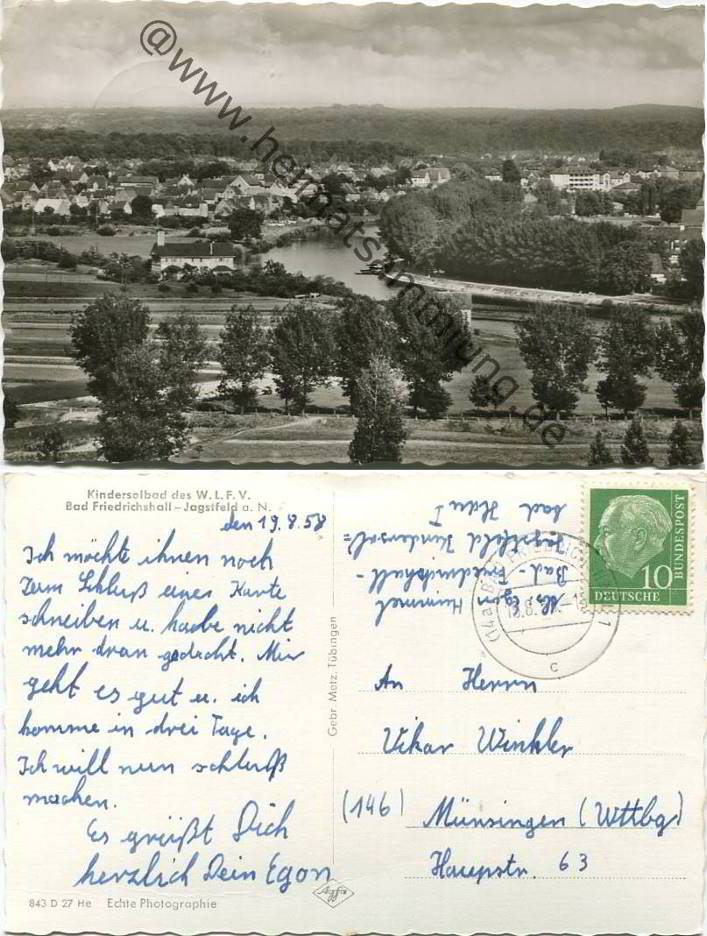 @www.heimatsammlung.de
Kindersolbad des W.L.F.V.
Bad Friedrichshall – Jagstfeld a. N.
den 19.8.58
Ich möchte ihnen noch
zum Schluß eines Karte
schreiben u. habe nicht
mehr dran gedacht. Mir
geht es gut u. ich
komme in drei Tage.
Ich will nun schluß
machen.
Es grüßt Dich
herzlich Dein Egon
843 D 27 He Echte Photographie
Gebr. Metz, Tübingen
Agfa
Himmel
Egon
Bad-Friedrichshall-
Jagstfeld Kindersol=
bad Hau I
10
DEUTSCHE
BUNDESPOST
(14a) BAD FRIEDRICHSHALL 1
c
An Herrn
Vikar Winkler
(146) Münsingen (Wttbg)
Haupstr. 63